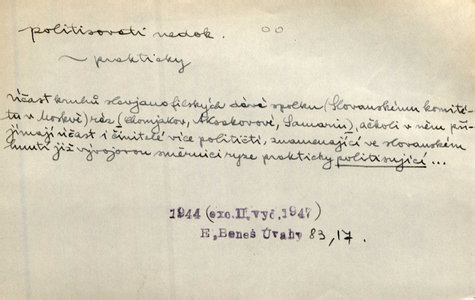 politisovati nedok.
~ prakticky
Účast kruhů slavjanofilských dává spolku (Slovanskému komité-
tu v Moskvě) ráz (Chomjakov, Aksakovové, Samarin), ačkoli v něm při-
jímají účast i činitelé více političtí, znamenající ve slovanském
hnutí již vývojovou směrnici ryze prakticky politisující...
1944 (exc. II, vyd. 1947)
E, Beneš Úvahy 83, 17.